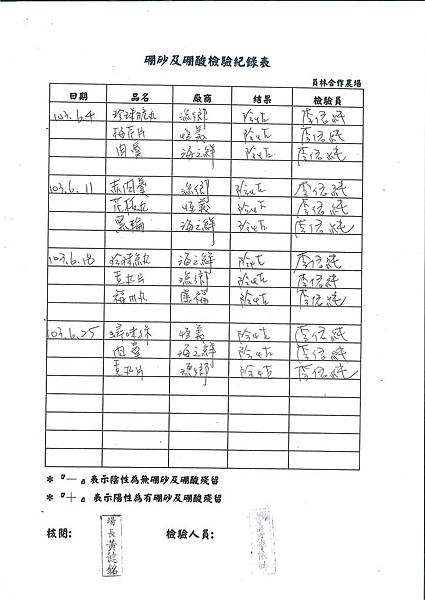 硼砂及硼酸檢驗紀錄表
員林合作農場
日期 品名 廠商 結果 檢驗員
103.6.4 珍珠脆丸 漁鄉 陰性 李信純
梅花片 恒義 陰性 李信純
肉羹 海之鮮 陰性 李信純
103.6.11 赤肉羹 漁鄉 陰性 李信純
花枝丸 恒義 陰性 李信純
黑輪 海之鮮 陰性 李信純
103.6.18 海之鮮 陰性 李信純
漁鄉 陰性 李信純
廣福 陰性 李信純
103.6.25 恒義 陰性 李信純
肉羹 海之鮮 陰性 李信純
漁鄉 陰性 李信純
* 『－』表示陰性為無硼砂及硼酸殘留
* 『＋』表示陽性為有硼砂及硼酸殘留
核閱: 場長黃健銘 檢驗人員: